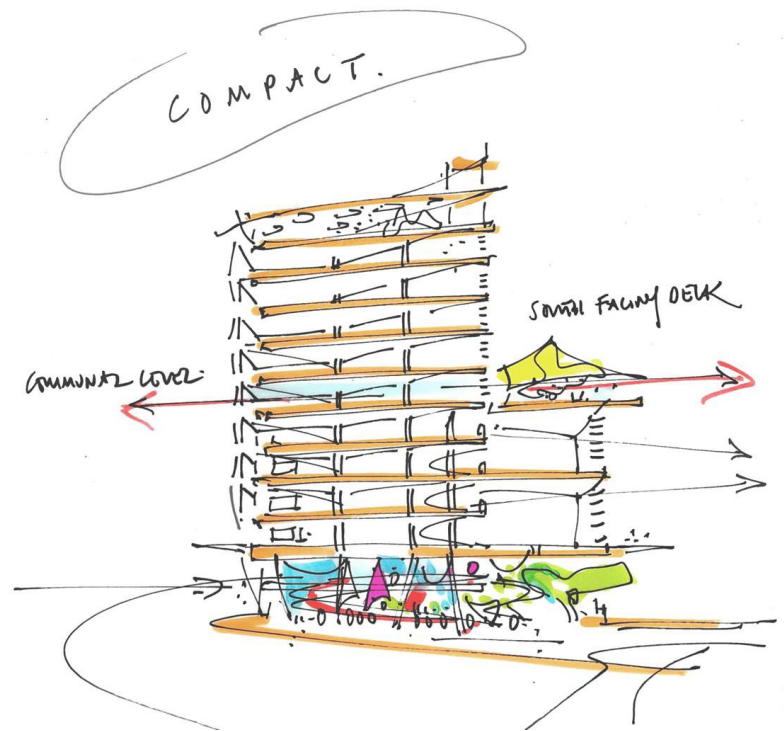 COMPACT.
SOUTH FACING DECK
COMMUNAL LEVEL.